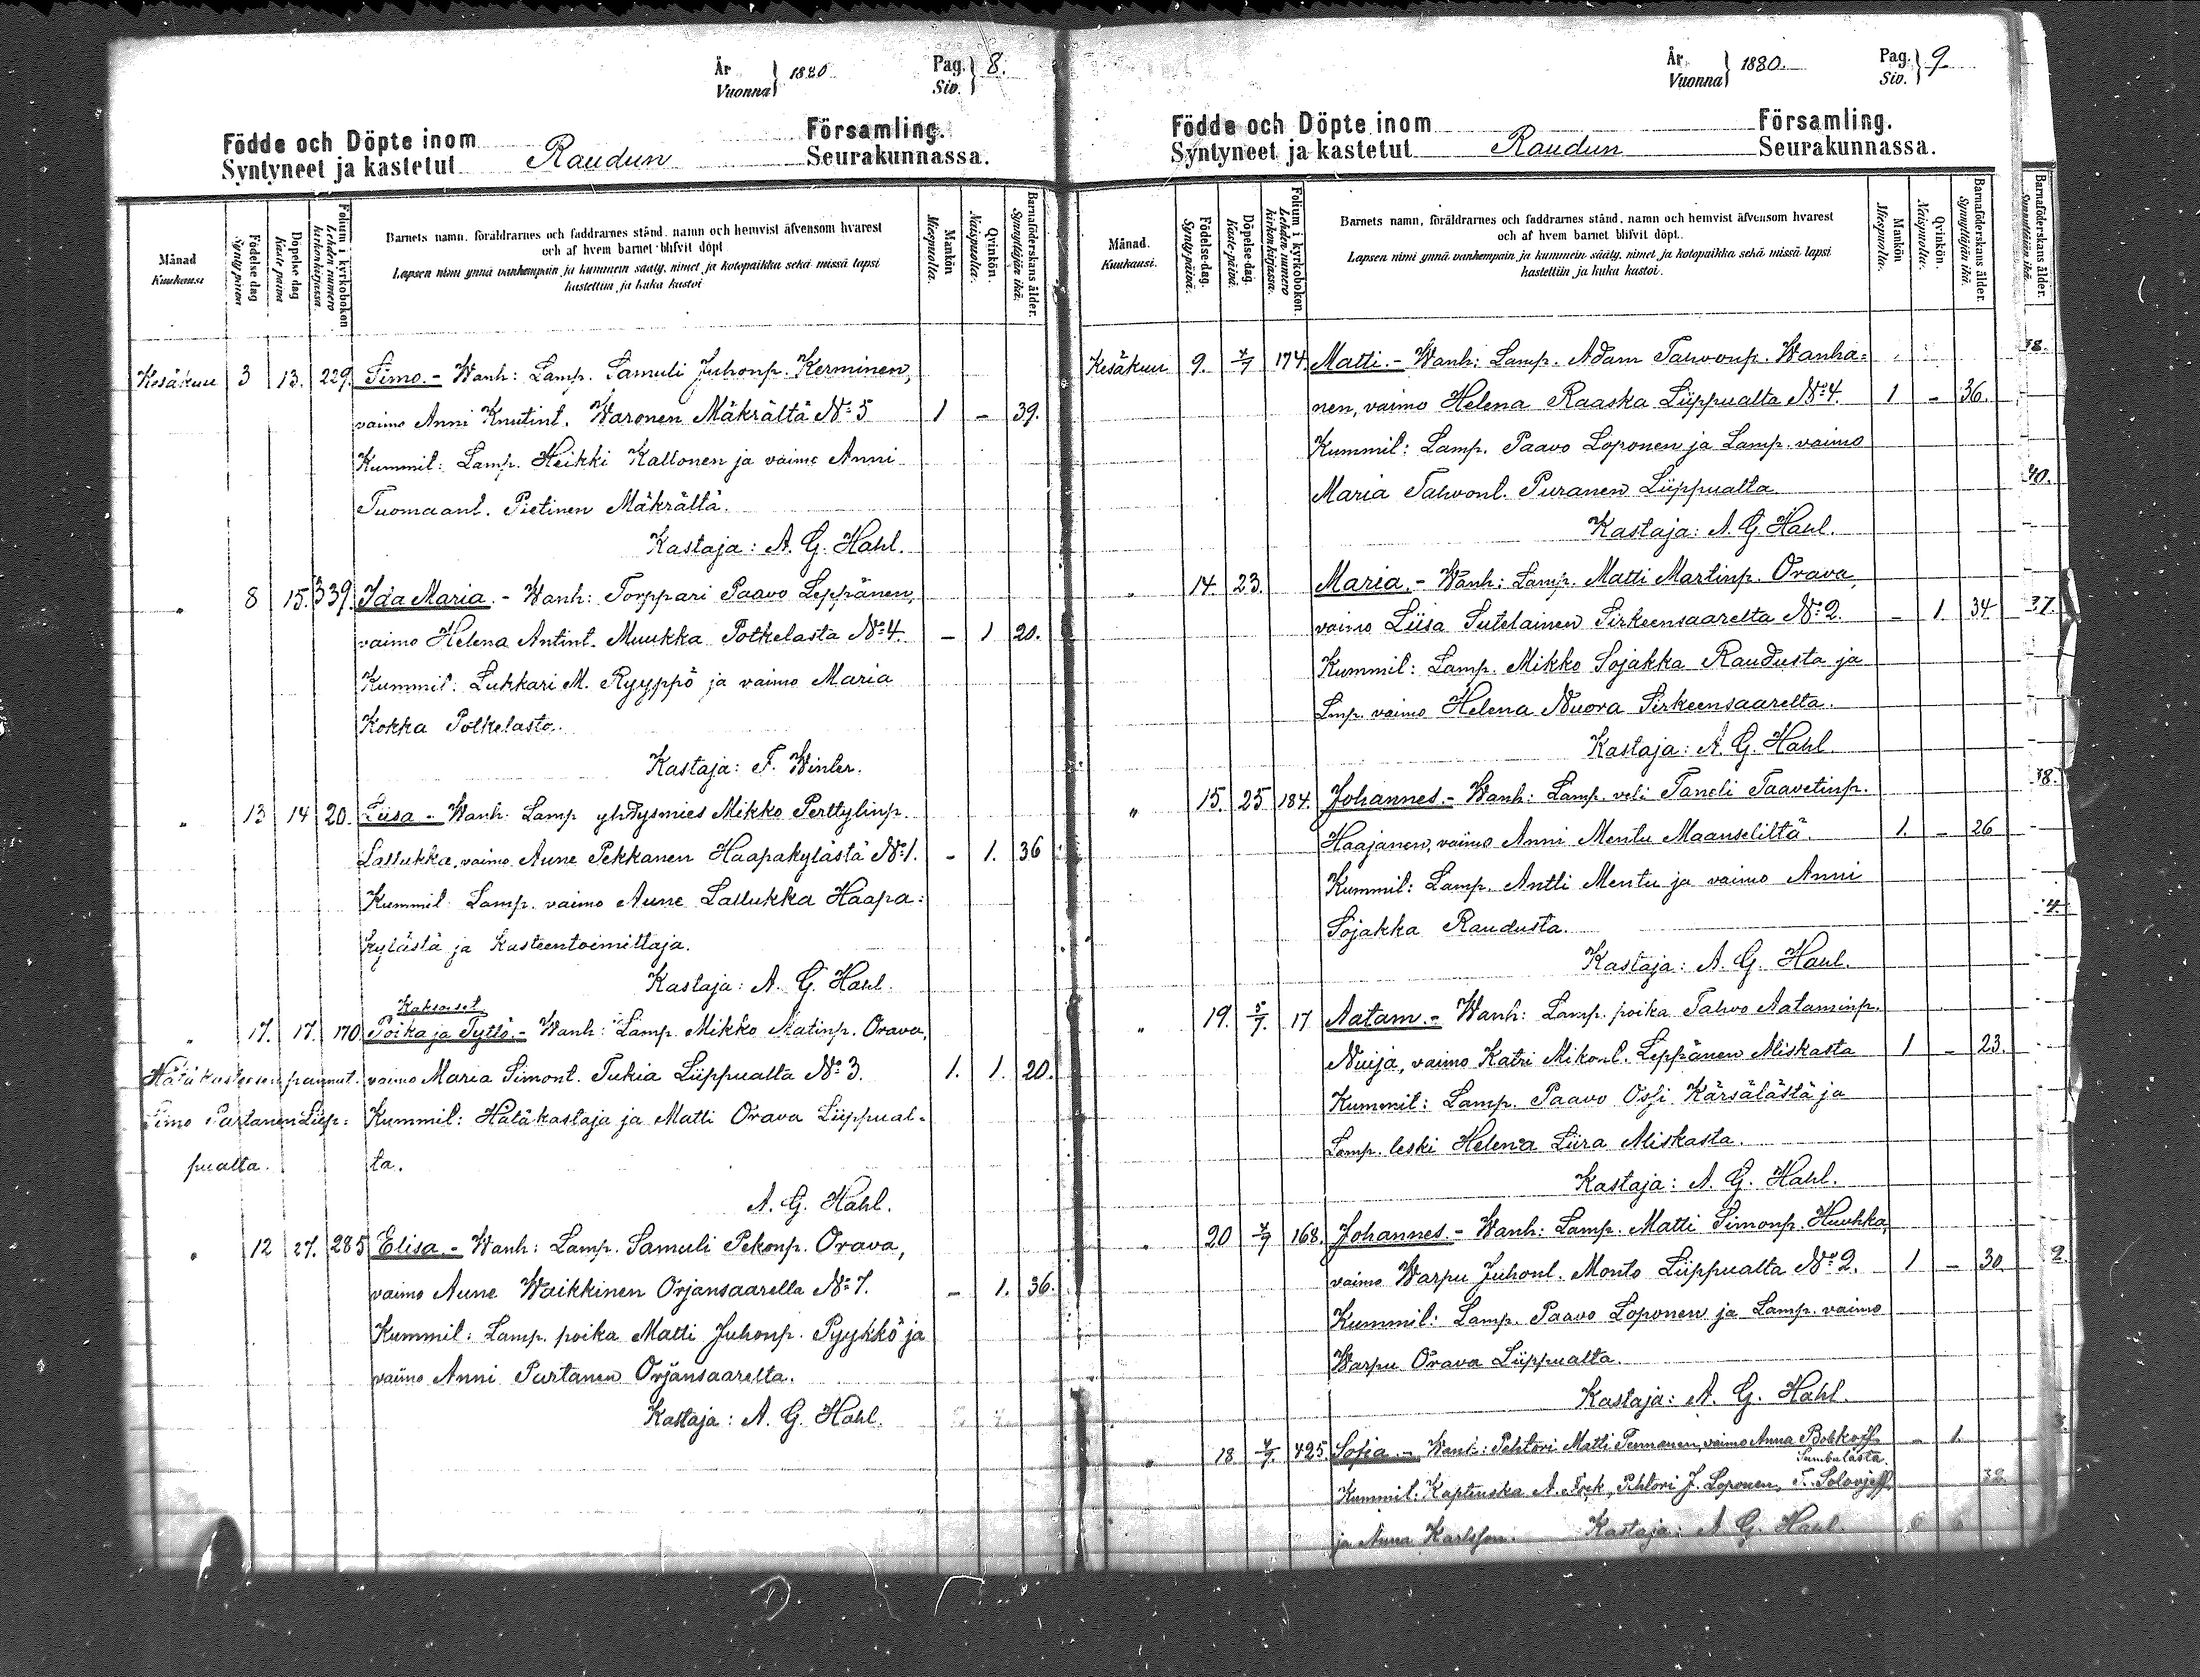 År
Vuonna } 1880. Pag.
Siv. } 8.
Födde och Döpte inom Församling.
Syntyneet ja kastetut Raudun Seurakunnassa.
Månad
Kuukausi
Födelse-dag
Syntypäivä
Döpelse-dag
Kastepäivä
Folium i kyrkobokon
Lehden numero
kirkonkirjassa.
Barnets namn, föräldrarnes och faddrarnes stånd, namn och hemvist äfvensom hvarest
och af hvem barnet blifvit döpt
Lapsen nimi ynnä vanhempain ja kummein sääty, nimet ja kotopaikka sekä missä lapsi
kastettiin ja kuka kastoi
Mankön
Miespuolta.
Qvinkön.
Naispuolta.
Barnaföderskans ålder.
Synnyttäjän ikä.
Kesäkuu 3 13. 229. Simo. - Wanh: Lamp. Samuli Juhonp. Kerminen,
vaimo Anni Knutint. Waronen Mäkrältä No: 5 1 - 39.
Kummit: Lamp. Heikki Kallonen ja vaimo Anni
Tuomaant. Pietinen Mäkrältä.
Kastaja: A. G. Hahl.
" 8 15. 339. Ida Maria. - Wanh: Torppari Paavo Leppänen,
vaimo Helena Antint. Muukka Potkelasta No: 4. - 1 20.
Kummit: Lukkari M. Ryyppö ja vaimo Maria
Kokka Potkelasta.
Kastaja: F. Winter.
" 13 14 20. Liisa - Wanh. Lamp yhtysmies Mikko Perttylinp.
Lallukka, vaimo Aune Pekkanen Haapakylästä No: 1. - 1. 36
Kummit Lamp. vaimo Aune Lallukka Haapa:
kylästä ja Kasteentoimittaja.
Kastaja: A. G. Hahl.
Kaksoiset
" 17. 17. 170 Poika ja Tyttö. - Wanh: Lamp. Mikko Matinp. Orava,
Hätäkasteesen pannut. vaimo Maria Simont. Tukia Liippualta No: 3. 1. 1. 20.
Simo Partanen Liip: Kummit: Hätäkastaja ja Matti Orava Liippual-
pualta. ta.
A. G. Hahl.
" 12 27. 285 Elisa. - Wanh: Lamp. Samuli Pekonp. Orava,
vaimo Aune Waikkinen Orjansaarella No: 7. - 1. 36.
Kummit: Lamp. poika Matti Juhonp. Pyykkö ja
vaimo Anni Partanen Orjansaarelta.
Kastaja: A. G. Hahl.
År
Vuonna } 1880. Pag.
Siv. } 9
Födde och Döpte inom Församling.
Syntyneet ja kastetut Raudun Seurakunnassa.
Månad.
Kuukausi.
Födelse-dag.
Syntypäivä.
Döpelse-dag.
Kastepäivä.
Folium i kyrkobokon.
Lehden numero
kirkonkirjassa.
Barnets namn, föräldrarnes och faddrarnes stånd, namn och hemvist äfvensom hvarest
och af hvem barnet blifvit döpt.
Lapsen nimi ynnä vanhempain ja kummein sääty, nimet ja kotopaikka sekä missä lapsi
kastettiin ja kuka kastoi.
Mankön
Miespuolta.
Qvinkön.
Naispuolta.
Barnaföderskans ålder.
Synnyttäjän ikä.
Kesäkuu 9. 4/7 174. Matti. - Wanh: Lamp. Adam Tahvonp. Wanha=
nen, vaimo Helena Raaska Liippualta No: 4. 1 - 36.
Kummit: Lamp. Paavo Loponen ja Lamp. vaimo
Maria Tahvont. Puranen Liippualta
Kastaja: A. G. Hahl.
" 14. 23. Maria. - Wanh: Lamp. Matti Martinp. Orava,
vaimo Liisa Sutelainen Sirkeensaarelta No: 2. - 1. 34
Kummit: Lamp. Mikko Sojakka Raudusta ja
Lmp. vaimo Helena Nuora Sirkeensaarelta.
Kastaja: A. G. Hahl
" 15. 25 184. Johannes. - Wanh: Lamp. veli Taneli Taavetinp.
Haajanen, vaimo Anni Mentu Maanseliltä. 1. - 26
Kummit: Lamp. Antti Mentu ja vaimo Anni
Sojakka Raudusta.
Kastaja: A. G. Hahl.
" 19. 5/7. 17 Aatam. - Wanh: Lamp. poika Tahvo Aataminp.
Nuija, vaimo Katri Mikont. Leppänen Miskasta 1 - 23.
Kummit: Lamp. Paavo Ossi Kärsälästä ja
Lamp. leski Helena Liira Miskasta.
Kastaja: A. G. Hahl.
" 20 4/7 168. Johannes. - Wanh: Lamp. Matti Simonp. Huuhka,
vaimo Warpu Juhont. Monto Liippualta No: 2. 1 - 30.
Kummit: Lamp. Paavo Loponen ja Lamp. vaimo
Warpu Orava Liippualta.
Kastaja: A. G. Hahl.
" 18 4/7. 425. Sofia. - Wanh: Pehtori Matti Pennanen, vaimo Anna Bobkoff - 1.
Sumbulasta.
Kummit: A. Fock, Pehtori J. Loponen, T. Solovjeff 32
ja Anna Karlsson. Kastaja: A. G. Hahl.
Barnaföderskans ålder.
Synnyttäjän ikä.
38.
40.
37.
38.
4.
2.